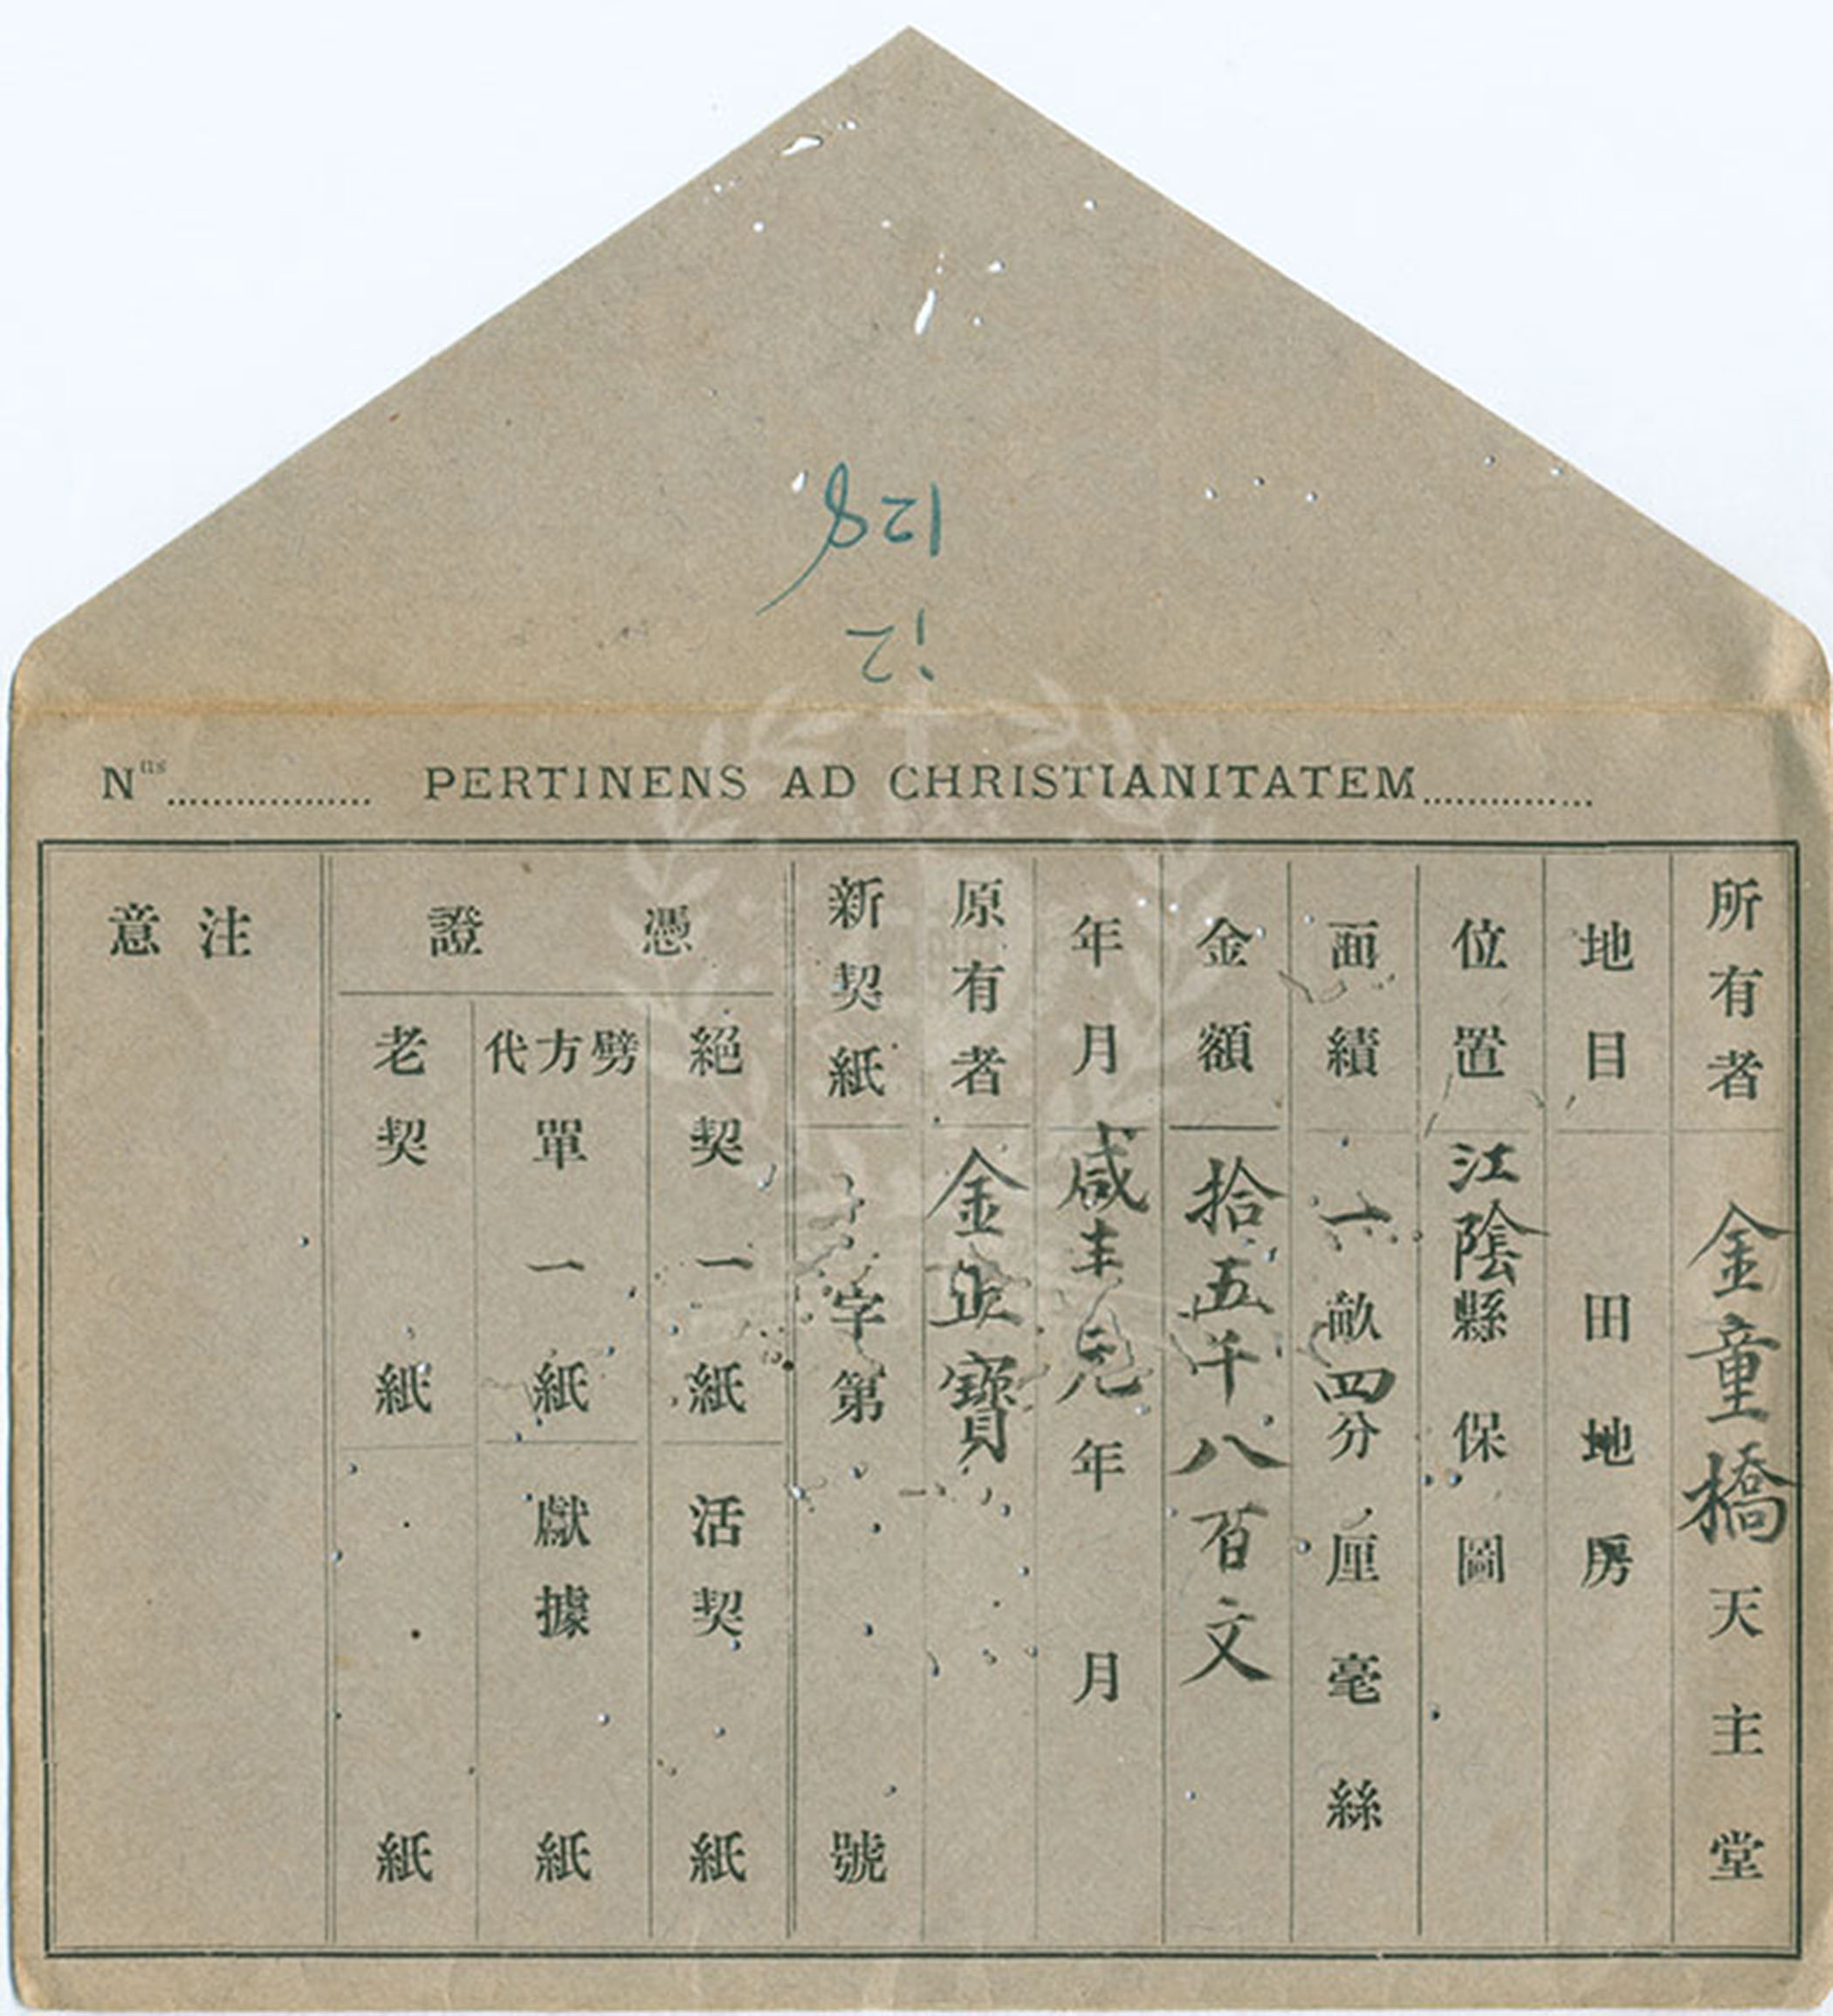 128
12
Nus PERTINENS AD CHRISTIANITATEM
所有者 金童橋天主堂
地目 田地房
位置 江陰縣保圖
面績 一畝四分厘毫絲
金額 拾五千八百文
年月 咸丰元年月
原有者 金正寶
新契紙 字第號
憑證
絕契一紙 活契紙
劈方代單一紙 獻據紙
老契紙 紙
注意